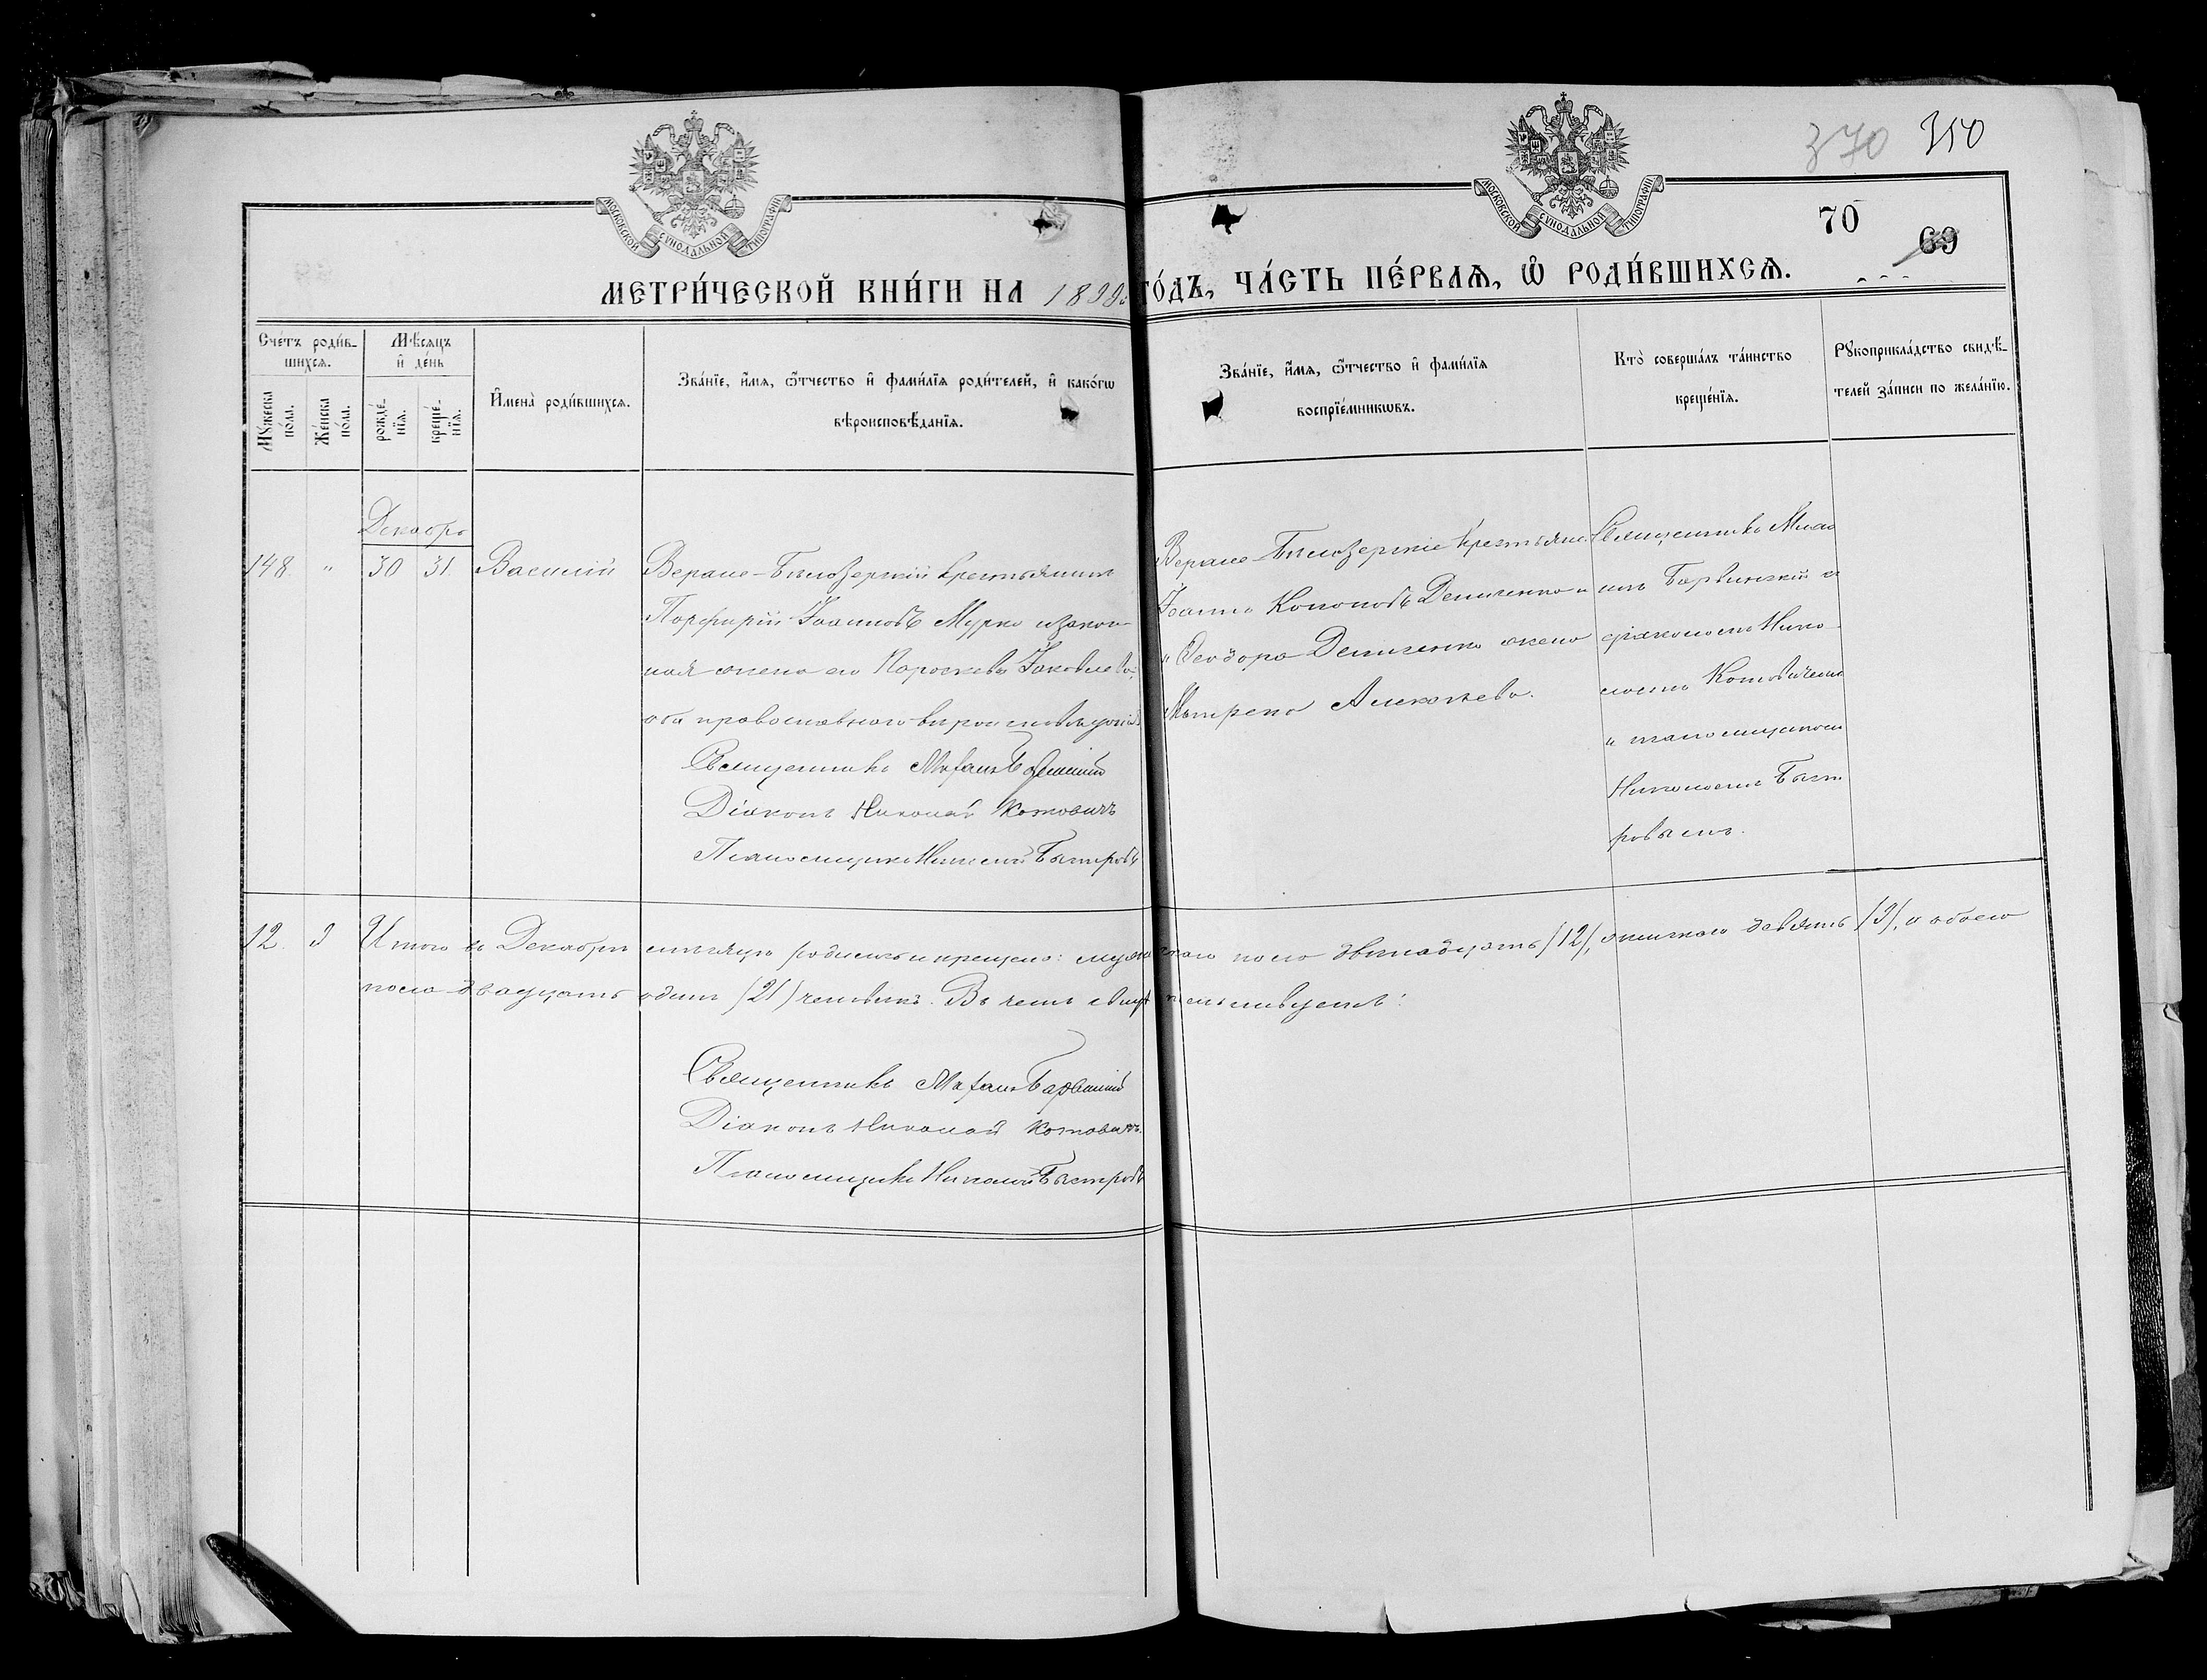 370 310
МОСКОВСКОЙ СѴНОДАЛЬНОЙ ТИПОГРАФІИ
МОСКОВСКОЙ СѴНОДАЛЬНОЙ ТИПОГРАФІИ
70
69
МЕТРИ́ЧЕСКОЙ КНИ́ГИ НА 1899 ГО́ДЪ, ЧА́СТЬ ПЕ́РВАЯ, Ѡ҆ РОДИ́ВШИХСЯ.
Сче́тъ роди́в-
шихся.
Мꙋ́жеска по́ла.
Же́нска по́ла.
Мѣ́сяцъ
и҆ де́нь
рожде́-
нїя.
креще́-
нїя.
И҆мена̀ роди́вшихся.
Зва́нїе, и҆́мя, ѻ҆́тчество и҆ фами́лїя роди́телей, и҆ како́гѡ
вѣроисповѣ́данїя.
Зва́нїе, и҆́мя, ѻ҆́тчество и҆ фами́лїя
воспрїе́мникѡвъ.
Кто̀ соверша́лъ та́инство
креще́нїя.
Рꙋкоприкла́дство свидѣ́-
телей за́писи по жела́нїю.
Декабрь
148 " 30 31. Василій
Верхне-Бѣлозерскій крестьянинъ
Порфирій Іоанновъ Мурко и закон-
ная жена его Параскева Іаковлева,
оба православнаго вѣроисповѣданія
Священникъ Михаилъ Барвинскій
Діаконъ Николай Котовичъ
Псаломщикъ Николай Быстровъ
Верхне-Бѣлозерскіе крестьяне
Іоаннъ Кононовъ Демченко и
Ѳеодора Демченко жена
Матрена Алексѣева.
Священникъ Миха-
илъ Барвинскій съ
діакономъ Нико-
лаемъ Котовичемъ
и псаломщикомъ
Николаемъ Быст-
ровымъ.
12 9 Итого въ Декабрѣ мѣсяцѣ родилось и крещено: мужескаго пола двѣнадцать /12/, женскаго девять /9/, а обоего
пола двадцать одинъ /21/ человѣкъ. Въ чемъ и свидѣтельствуемъ:
Священникъ Михаилъ Барвинскій
Діаконъ Николай Котовичъ.
Псаломщикъ Николай Быстровъ